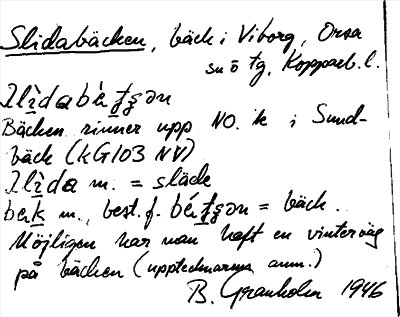 Slidabäcken, bäck i Viborg, Orsa
sn ö fg, Kopparb. l.
Bäcken rinner upp NO. ik i Sund-
bäck (KG103 NV)
m. = släde
bek m., best. f. = bäck.
Möjligen har man haft en vinterväg
på bäcken (upptecknarens anm.)
B. Granholm 1946